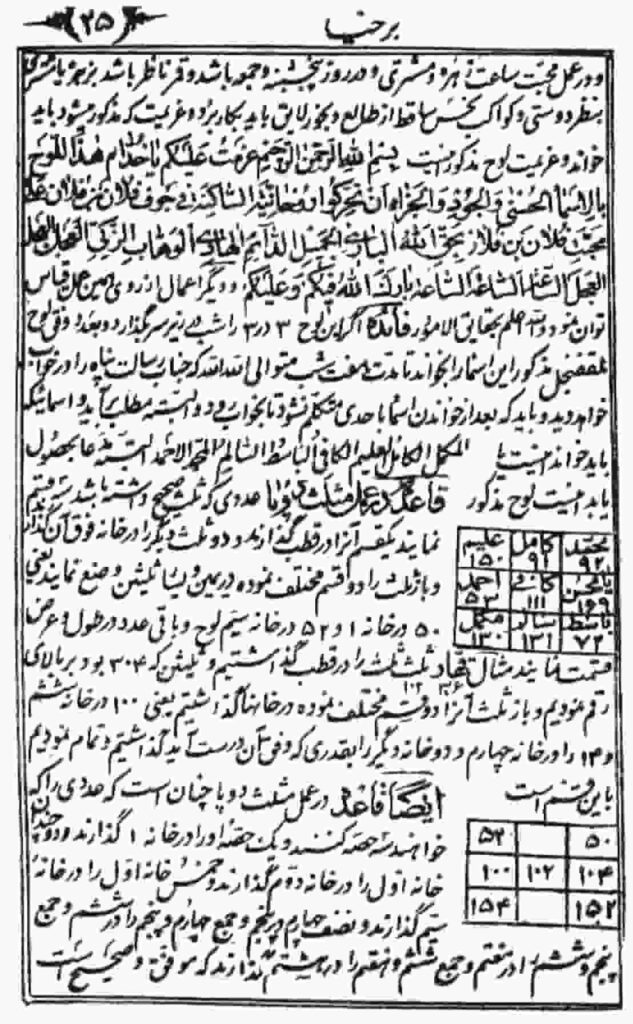 برخیا
۲۵
و در عمل محبت ساعت زهره و مشتری و در روز پنجشنبه و جمعه باشد و قمر ناظر باشد بزهره یا مشتری
بنظر دوستی و کواکب نحس ساقط از طالع و بخور لایق باید بکار برد و عزیمت که مذکور میشود باید
خواند و عزیمت لوح مذکور اینست بِسْمِ اللهِ الرَّحْمنِ الرَّحیمِ عَزَمْتُ عَلَیْکُمْ یا خُدّامَ هٰذَا اللَّوْحِ
بِالاَسْماءِ الْحُسْنی وَ الْجُودِ وَ الْجَزاءِ اَنْ تُحَرِّکُوا رُوحانِیَّةَ السّاکِنَةِ فی جَوْفِ فلان بن فلان عَلی
مَحَبَّتِ فلان بن فلان بِحَقِّ اللهِ الْباری الْجَمیلِ الدّائِمِ الْهادی الْوَهّابِ الزَّکِیِّ الْعَجَل الْعَجَل
الْعَجَل السّاعَة السّاعَة السّاعَة بارَکَ اللهُ فیکُمْ وَ عَلَیْکُمْ و دیگر اعمال از روی همین عمل قیاس
توان نمود والله اعلم بحقایق الامور فائده اگر این لوح ۳ در ۳ را شب در زیر سر گذارد و بعد از وفق لوح
مذکور این اسما را بخواند تا مدت هفت شب متوالی انشاءالله که جناب رسالت پناه را در خواب
خواهد دید و باید که بعد از خواندن اسما با احدی متکلم نشود تا بخواب رود البته مطلب برآید و اسمائیکه
باید خواند اینست یا المکمل الکامل العلیم الکافی الباسط السالم المحمد الاحمد البته مدعا بحصول
یابد اینست لوح مذکور قاعده در عمل مثلث دوپا عددی که ثلث صحیح داشته باشد سه قسم
نمایند یکقسم آنرا در قطب گذارند و دو ثلث دیگر را در خانه فوق آن گذارند
و باز ثلث را دو قسم مختلف نموده در یمین و یسار ثلیثن وضع نمایند یعنی
۵۰ در خانه ۱ و ۵۲ در خانه سیم لوح و باقی عدد در طول و عرض
محمد ۹۲ کامل ۹۱ علیم ۱۵۰
۱۶۹ کافی ۱۱۱ احمد ۵۳
باسط ۷۲ سالم ۱۳۱ مکمل ۱۳۰
قسمت نمایند مثال ثلث را در قطب گذاشتیم و ثلیثن که ۲۰۴ بود بر بالای
رقم نمودیم و باز ثلث آنرا دو قسم مختلف نموده در خانها گذاشتیم یعنی ۱۰۰ در خانه ششم
و ۱۰۴ را در خانه چهارم و دو خانه دیگر را بقدری که وفق آن درست آید گذاشتیم و تمام نمودیم
باین قسم است ایضاً قاعده در عمل مثلث دوپا چنان است که عددی را که
خواهند سه حصه کنند و یک حصه او را در خانه ۱ گذارند و دو چندان
خانه اول را در خانه دوم گذارند و خمس خانه اول را در خانه
سیم گذارند و نصف چهارم در پنجم و جمع چهارم و پنجم را در ششم و جمع
۵۰ ۵۲
۱۰۴ ۱۰۲ ۱۰۰
۱۵۲ ۱۵۴
پنجم و ششم را در هفتم و جمع ششم و هفتم را در هشتم گذارند که موفق و صحیح است